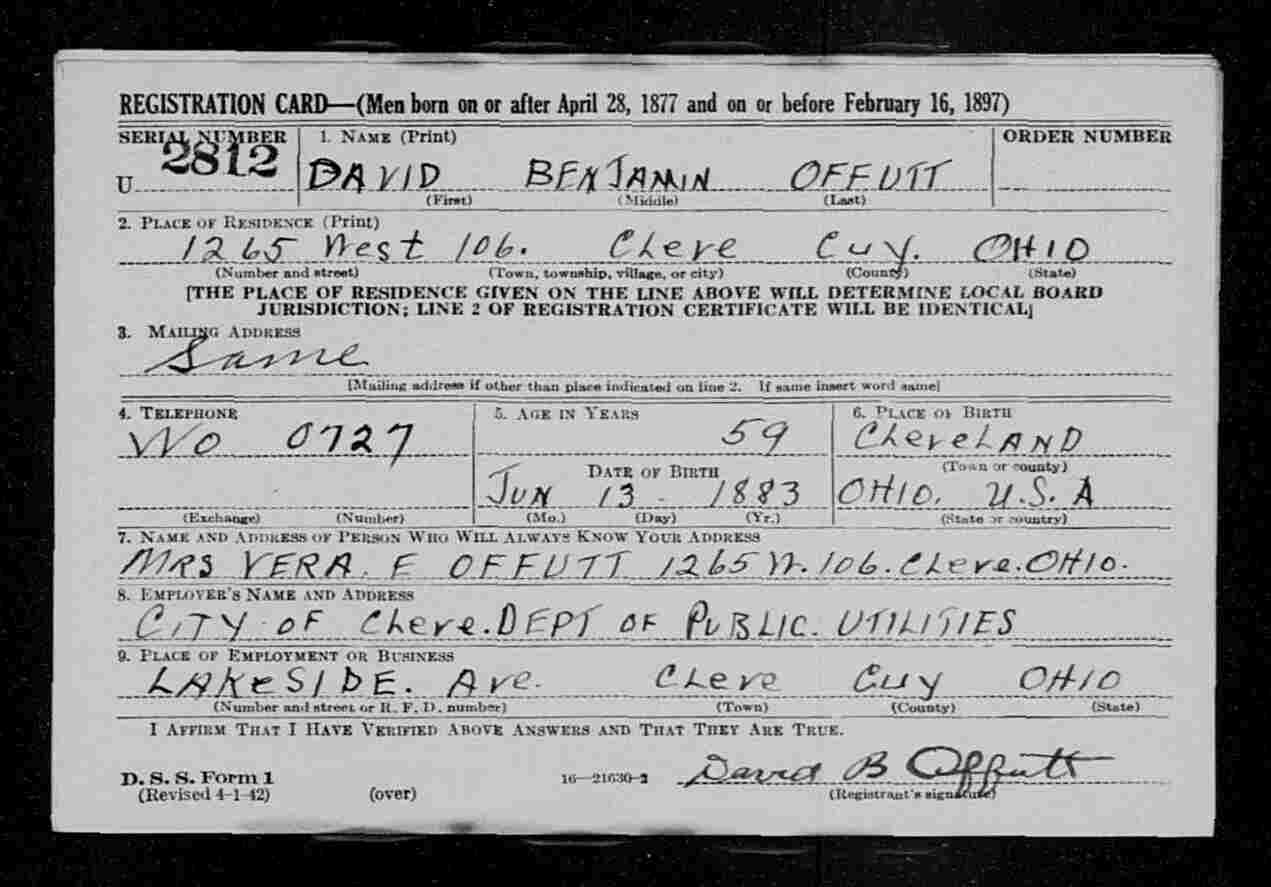 REGISTRATION CARD—(Men born on or after April 28, 1877 and on or before February 16, 1897)
SERIAL NUMBER 1. NAME (Print) ORDER NUMBER
U 2812 DAVID BENJAMIN OFFUTT
(First) (Middle) (Last)
2. PLACE OF RESIDENCE (Print)
1265 West 106. CLeve Cuy. OHIO
(Number and street) (Town, township, village, or city) (County) (State)
[THE PLACE OF RESIDENCE GIVEN ON THE LINE ABOVE WILL DETERMINE LOCAL BOARD
JURISDICTION; LINE 2 OF REGISTRATION CERTIFICATE WILL BE IDENTICAL]
3. MAILING ADDRESS
Same
[Mailing address if other than place indicated on line 2. If same insert word same]
4. TELEPHONE 5. AGE IN YEARS 6. PLACE OF BIRTH
WO 0727 59 CLeveLAND
DATE OF BIRTH (Town or county)
JUN 13 - 1883 OHIO. U.S.A
(Exchange) (Number) (Mo.) (Day) (Yr.) (State or country)
7. NAME AND ADDRESS OF PERSON WHO WILL ALWAYS KNOW YOUR ADDRESS
MRS VERA. E OFFUTT 1265 W. 106. CLeve. OHIO.
8. EMPLOYER'S NAME AND ADDRESS
CITY OF CLeve. DEPT OF PUBLIC. UTILITIES
9. PLACE OF EMPLOYMENT OR BUSINESS
LAKeSIDE. Ave. CLeve Cuy OHIO
(Number and street or R. F. D. number) (Town) (County) (State)
I AFFIRM THAT I HAVE VERIFIED ABOVE ANSWERS AND THAT THEY ARE TRUE.
D. S. S. Form 1 16—21630-2 David B Offutt
(Revised 4-1-42) (over) (Registrant's signature)